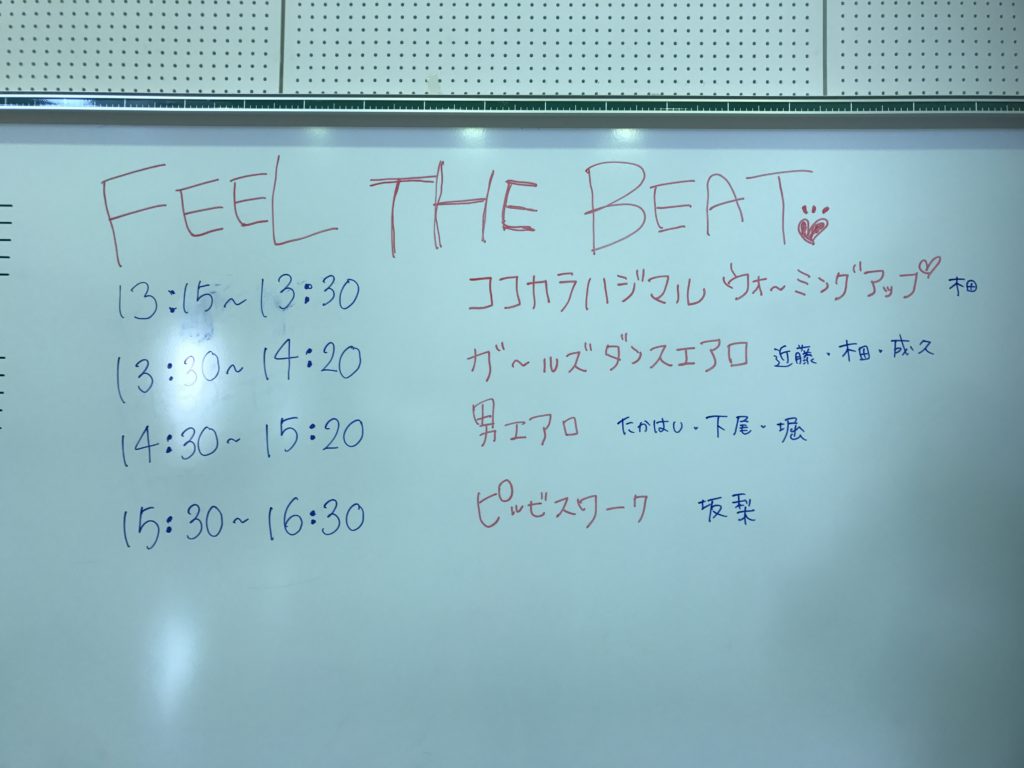 FEEL THE BEAT
13:15～13:30 ココカラハジマル ウォ～ミングアップ♡
13:30～14:20 ガ～ルズダンスエアロ 近藤・柚・成久
14:30～15:20 男エアロ たかはし・下尾・堀
15:30～16:30 ピルビスワーク 坂梨